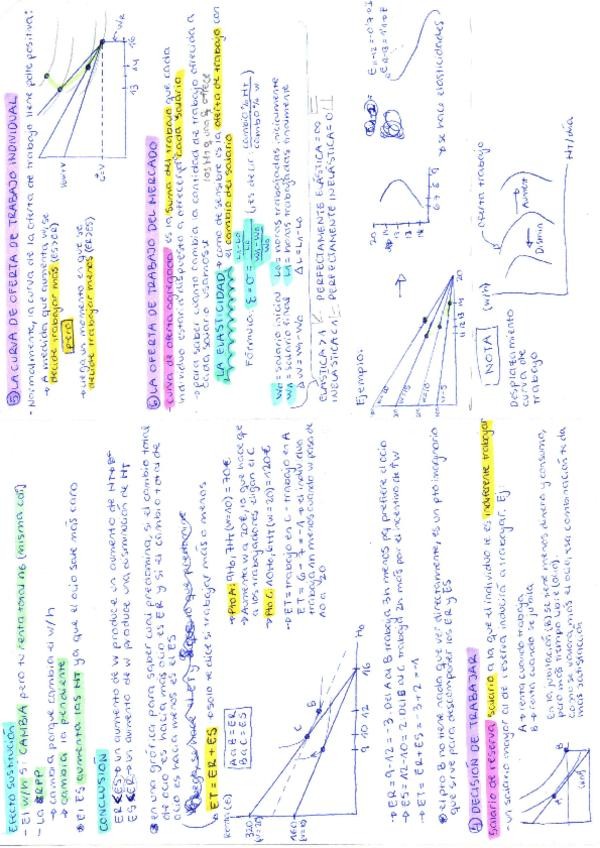 Efecto sustitución
- El w/h sí CAMBIA pero tu renta total no (misma CI)
- La RPP
→ cambia porque cambia el w/h
→ cambia la pendiente
* El ES aumenta las HT ya que el ocio sale más caro
CONCLUSIÓN
ER < ES → un aumento de W produce un aumento de HT
ES < ER → un aumento de W produce una disminución de HT
en una gráfica para saber cual predomina, si el cambio total
de ocio es hacia más ocio es ER y si el cambio total de
ocio es hacia menos es el ES
ET = ER + ES → solo te dice si trabajar más o menos
Renta (€)
320
(w=20)
160
(w=10)
A a B = ER
B a C = ES
A
B
C
9 10 12
16
Ho
→ Pto A: 9Ho, 7HT (w=10) = 70€
→ Aumenta w a 20€, lo que hace que
los trabajadores elijan el C
→ Pto C: 10Ho, 6HT (w=20) = 120€
→ ET = trabajo en C - trabajo en A
ET = 6 - 7 = -1 → el individuo
trabaja 1h menos cuando w pasa de
10 a 20
→ ER = 9 - 12 = -3. Del A al B trabaja 3h menos pq prefiere el ocio
→ ES = 12 - 10 = 2. Del B al C trabaja 2h más por el incentivo de ↑w
→ ET = ER + ES = -3 + 2 = -1
el pto B no tiene nada que ver directamente, es un pto imaginario
que sirve para descomponer los ER y ES
④ DECISIÓN DE TRABAJAR
Salario de reserva: salario a la que el individuo le es indiferente trabajar
- un salario mayor al de reserva inducirá a trabajar. Ej:
A → renta cuando trabaja
B → renta cuando se jubila
En la jubilación (B) se tiene menos dinero y consumo,
pero más tiempo libre (ocio).
Como se valora más el ocio, esa combinación te da
más satisfacción
A
B
⑤ LA CURVA DE OFERTA DE TRABAJO INDIVIDUAL
- Normalmente, la curva de la oferta de trabajo tiene pdte positiva:
→ A medida que aumenta w, se
decide trabajar más (ES>ER)
pero
→ llega un momento en que se
decide trabajar menos (ER>ES)
WR
13 14 16
⑥ LA OFERTA DE TRABAJO DEL MERCADO
- curva de oferta agregada: es la suma del trabajo que cada
individuo estaría dispuesto a ofrecer en cada salario
→ Para saber cuánto cambia la cantidad de trabajo ofrecida a
cada salario usamos
LA ELASTICIDAD → como de sensible es la oferta de trabajo con
el cambio del salario
Fórmula: E = σ = L1-L0 / L0 / W1-W0 / W0 (es decir cambio % HT / cambio % w)
W0 = salario inicial
W1 = salario final
ΔW = W1 - W0
L0 = horas trabajadas inicialmente
L1 = horas trabajadas finalmente
ΔL = L1 - L0
ELÁSTICA > 1 PERFECTAMENTE ELÁSTICA = ∞
INELÁSTICA < 1 PERFECTAMENTE INELÁSTICA = 0
Ejemplo:
20
11 12 13 14
20
6 7 8 9
→ se hace elasticidades
NOTA
Desplazamiento
curva de
trabajo
(w/h)
oferta trabajo
Dismin
Aument
HT/día